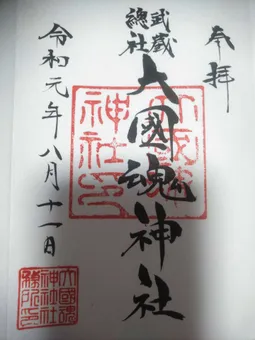 奉拝
武蔵
總社
大國魂神社
令和元年八月十一日
大國魂
神社印
大國魂
神社社
務所印